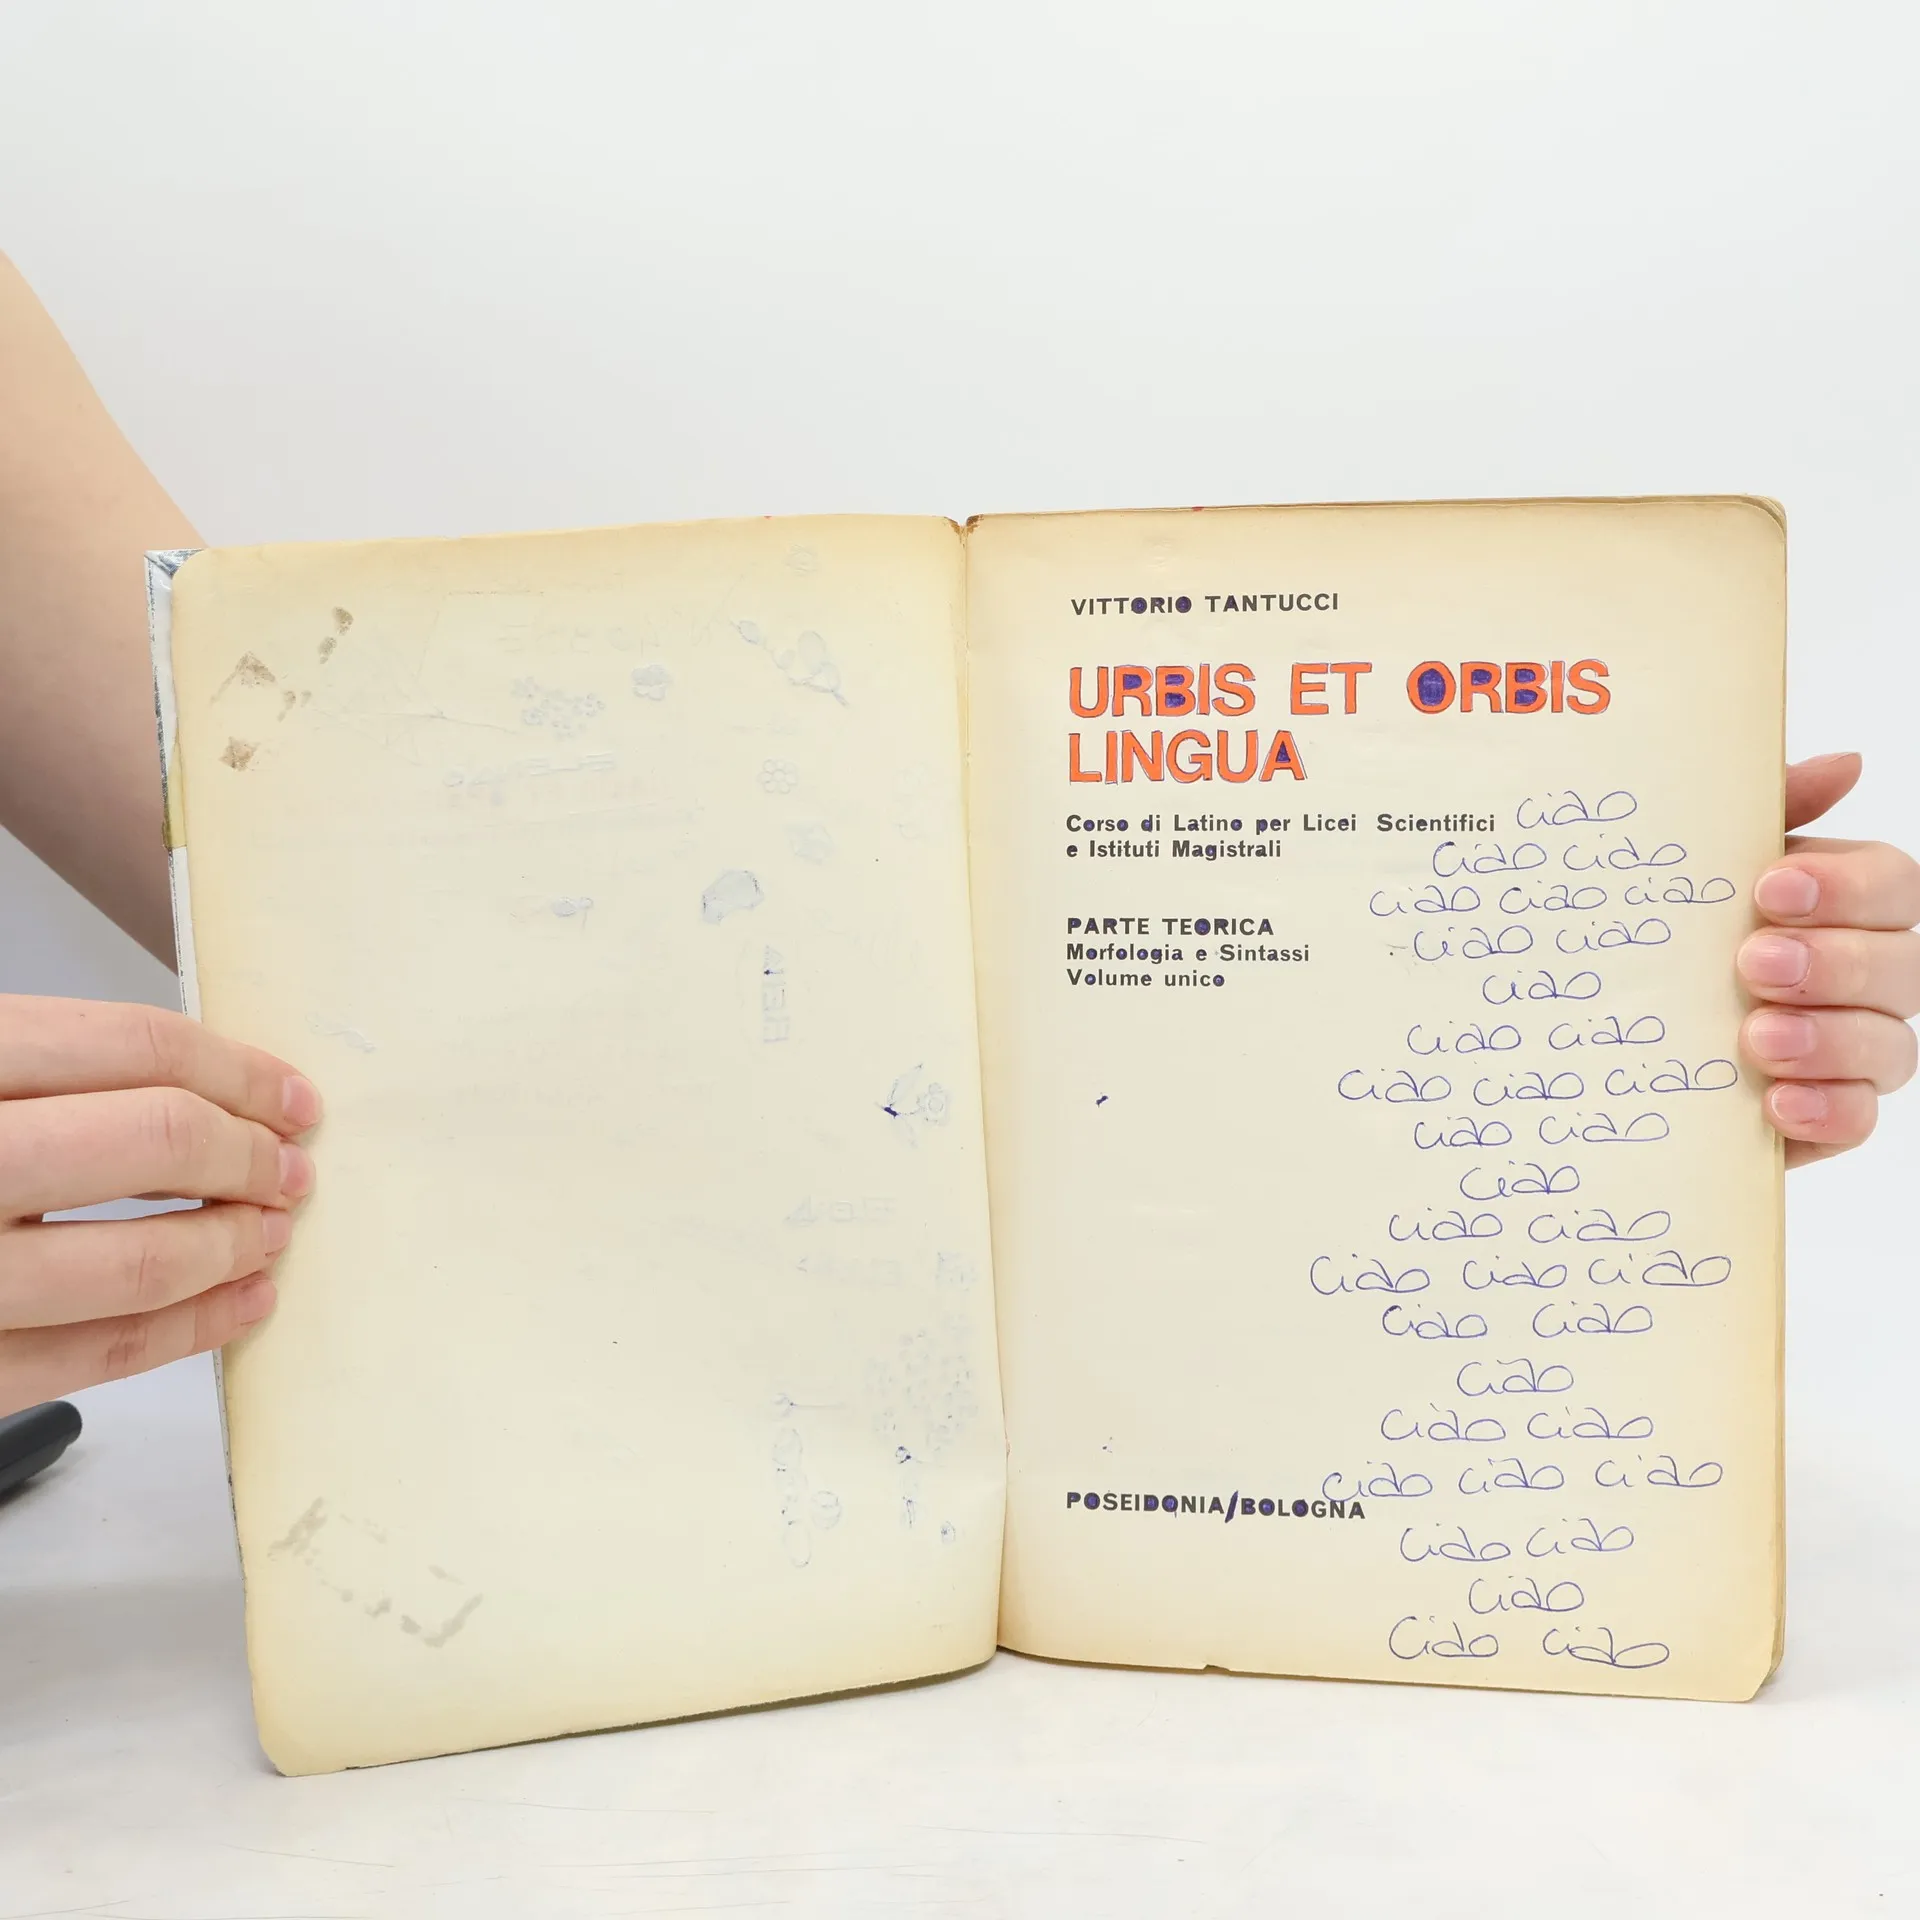 VITTORIO TANTUCCI
URBIS ET ORBIS
LINGUA
Corso di Latino per Licei Scientifici ciao
e Istituti Magistrali
ciao ciao
ciao ciao ciao
PARTE TEORICA
ciao ciao
Morfologia e Sintassi
Volume unico
ciao
ciao ciao
ciao ciao ciao
ciao ciao
ciao
ciao ciao
ciao ciao ciao
ciao ciao
ciao
ciao ciao
ciao ciao ciao
POSEIDONIA/BOLOGNA
ciao ciao
ciao
ciao ciao